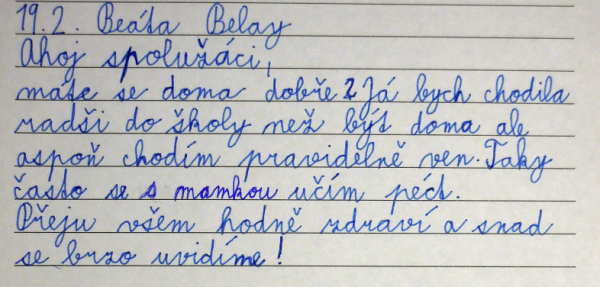 19.2. Beáta Belay
Ahoj spolužáci,
máte se doma dobře? Já bych chodila
radši do školy než být doma ale
aspoň chodím pravidelně ven. Taky
často se s mamkou učím péct.
Přeju všem hodně zdraví a snad
se brzo uvidíme!